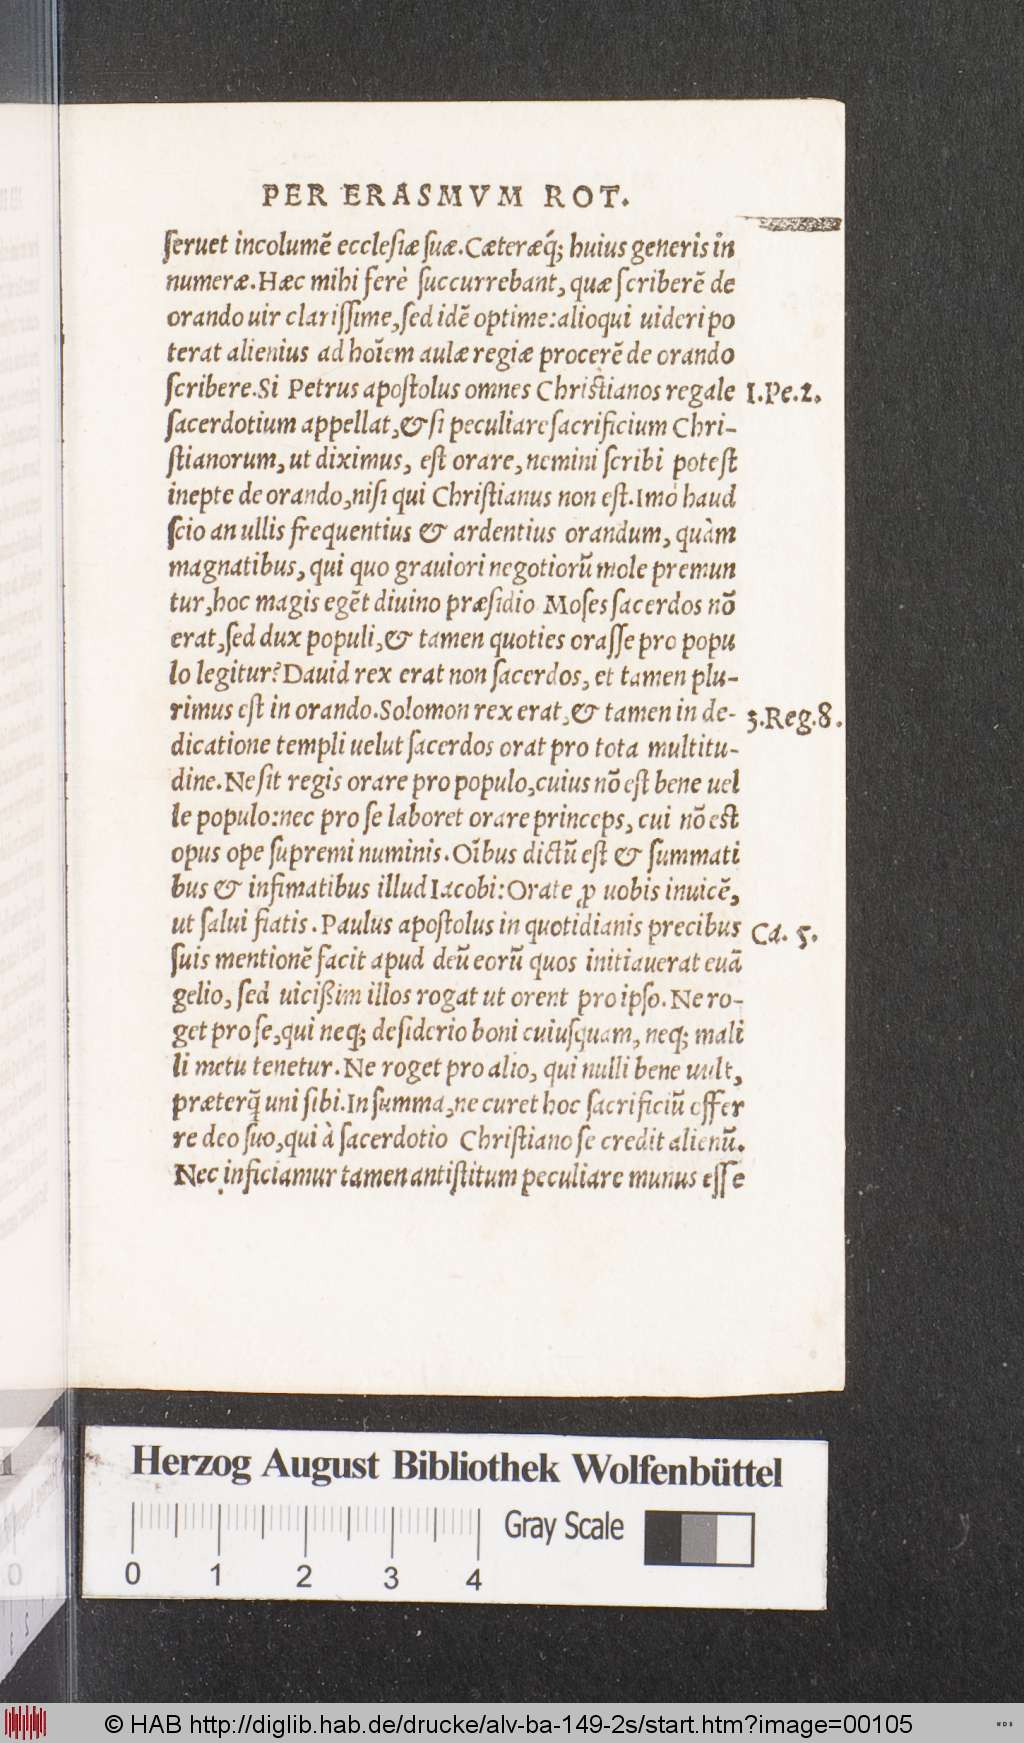 PER ERASMVM ROT.
ſeruet incolumẽ eccleſiæ ſuæ. Cæteræq́; huius generis in
numeræ. Hæc mihi ferè ſuccurrebant, quæ ſcriberẽ de
orando uir clariſſime, ſed idẽ optime: alioqui uideri po
terat alienius ad hoīem aulæ regiæ procerẽ de orando
ſcribere. Si Petrus apoſtolus omnes Chriſtianos regale
1. Pe. 2.
ſacerdotium appellat, & ſi peculiare ſacrificium Chri-
ſtianorum, ut diximus, eſt orare, nemini ſcribi poteſt
inepte de orando, niſi qui Chriſtianus non eſt. Imò haud
ſcio an ullis frequentius & ardentius orandum, quàm
magnatibus, qui quo grauiori negotiorũ mole premun
tur, hoc magis egẽt diuino præſidio Moſes ſacerdos nõ
erat, ſed dux populi, & tamen quoties oraſſe pro popu
lo legitur? Dauid rex erat non ſacerdos, et tamen plu-
rimus eſt in orando. Solomon rex erat, & tamen in de-
3. Reg. 8.
dicatione templi uelut ſacerdos orat pro tota multitu-
dine. Ne ſit regis orare pro populo, cuius nõ eſt bene uel
le populo: nec pro ſe laboret orare princeps, cui nõ est
opus ope ſupremi numinis. Oībus dictũ eſt & ſummati
bus & infimatibus illud Iacobi: Orate ꝓ uobis inuicẽ,
ut ſalui fiatis. Paulus apoſtolus in quotidianis precibus
Ca. 5.
ſuis mentionẽ facit apud deũ eorũ quos initiauerat euã
gelio, ſed uicißim illos rogat ut orent pro ipſo. Ne ro-
get pro ſe, qui neq; deſiderio boni cuiuſquam, neq; mali
li metu tenetur. Ne roget pro alio, qui nulli bene uult,
præterq̃ uni ſibi. In ſumma, ne curet hoc ſacrificiũ offer
re deo ſuo, qui à ſacerdotio Chriſtiano ſe credit alienũ.
Nec inficiamur tamen antiſtitum peculiare munus eſſe
Herzog August Bibliothek Wolfenbüttel
Gray Scale
0 1 2 3 4
© HAB http://diglib.hab.de/drucke/alv-ba-149-2s/start.htm?image=00105